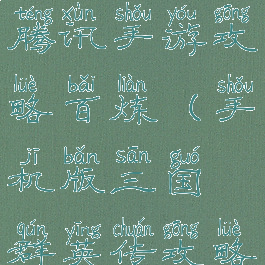 téng xùn shǒu yóu gōng
腾讯手游攻
lüè bǎi liàn shǒu
略百炼（手
jī bǎn sān guó
机版三国
qún yīng chuán gōng lüè
群英传攻略